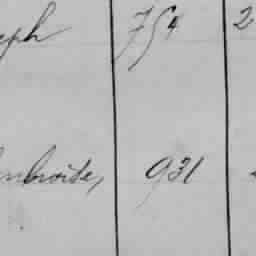 eph 754 2
mbroise, 931